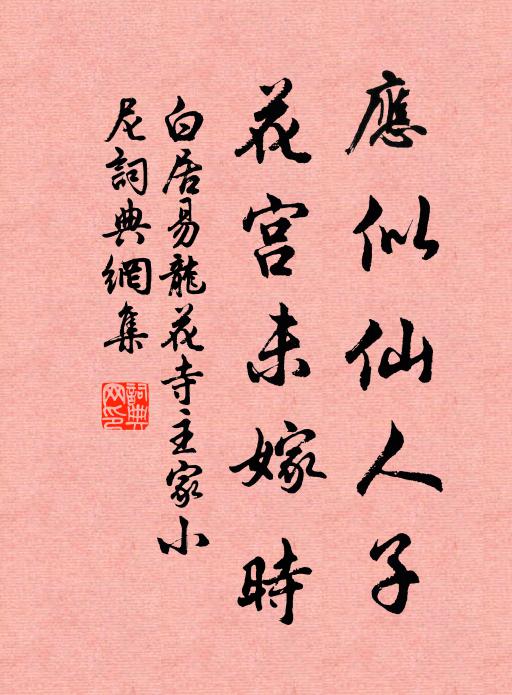 應似仙人子
花宮未嫁時
白居易龍花寺主家小
尼詞典網集
詞典网印